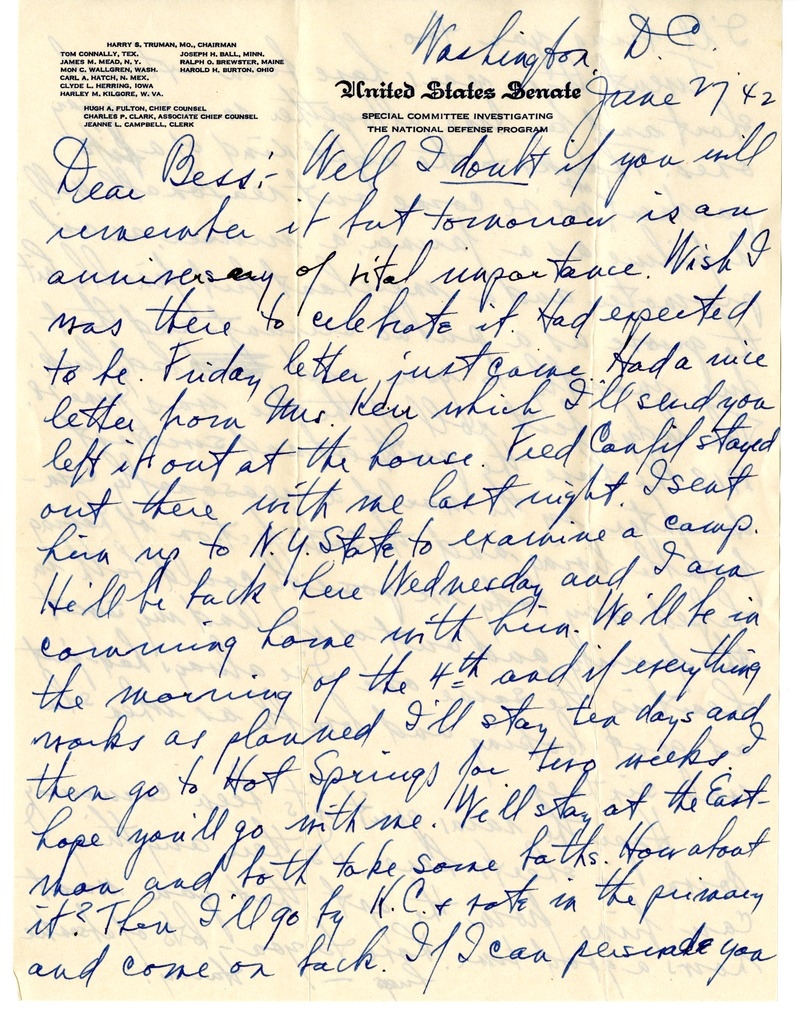 HARRY S. TRUMAN, MO., CHAIRMAN
TOM CONNALLY, TEX. JOSEPH H. BALL, MINN.
JAMES M. MEAD, N. Y. RALPH O. BREWSTER, MAINE
MON C. WALLGREN, WASH. HAROLD H. BURTON, OHIO
CARL A. HATCH, N. MEX.
CLYDE L. HERRING, IOWA
HARLEY M. KILGORE, W. VA.
HUGH A. FULTON, CHIEF COUNSEL
CHARLES P. CLARK, ASSOCIATE CHIEF COUNSEL
JEANNE L. CAMPBELL, CLERK
Washington, D.C.
United States Senate
June 27, 42
SPECIAL COMMITTEE INVESTIGATING
THE NATIONAL DEFENSE PROGRAM
Dear Bess:- Well I doubt if you will
remember it but tomorrow is an
anniversary of vital importance. Wish I
was there to celebrate it. Had expected
to be. Friday letter just came. Had a nice
letter from Mrs. Kerr which I'll send you
left it out at the house. Fred Canfil stayed
out there with me last night. I sent
him up to N.Y. State to examine a camp.
He'll be back here Wednesday and I am
comming home with him. We'll be in
the morning of the 4th and if everything
works as planned I'll stay ten days and
then go to Hot Springs for two weeks. I
hope you'll go with me. We'll stay at the East-
man and both take some baths. How about
it? Then I'll go by K.C. & vote in the primary
and come on back. If I can persuade you